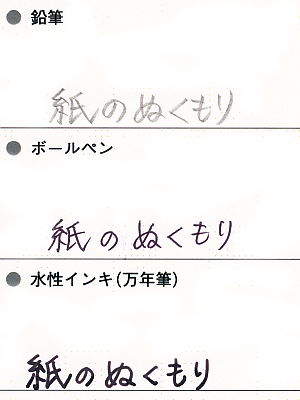 ● 鉛筆
紙のぬくもり
● ボールペン
紙のぬくもり
● 水性インキ(万年筆)
紙のぬくもり